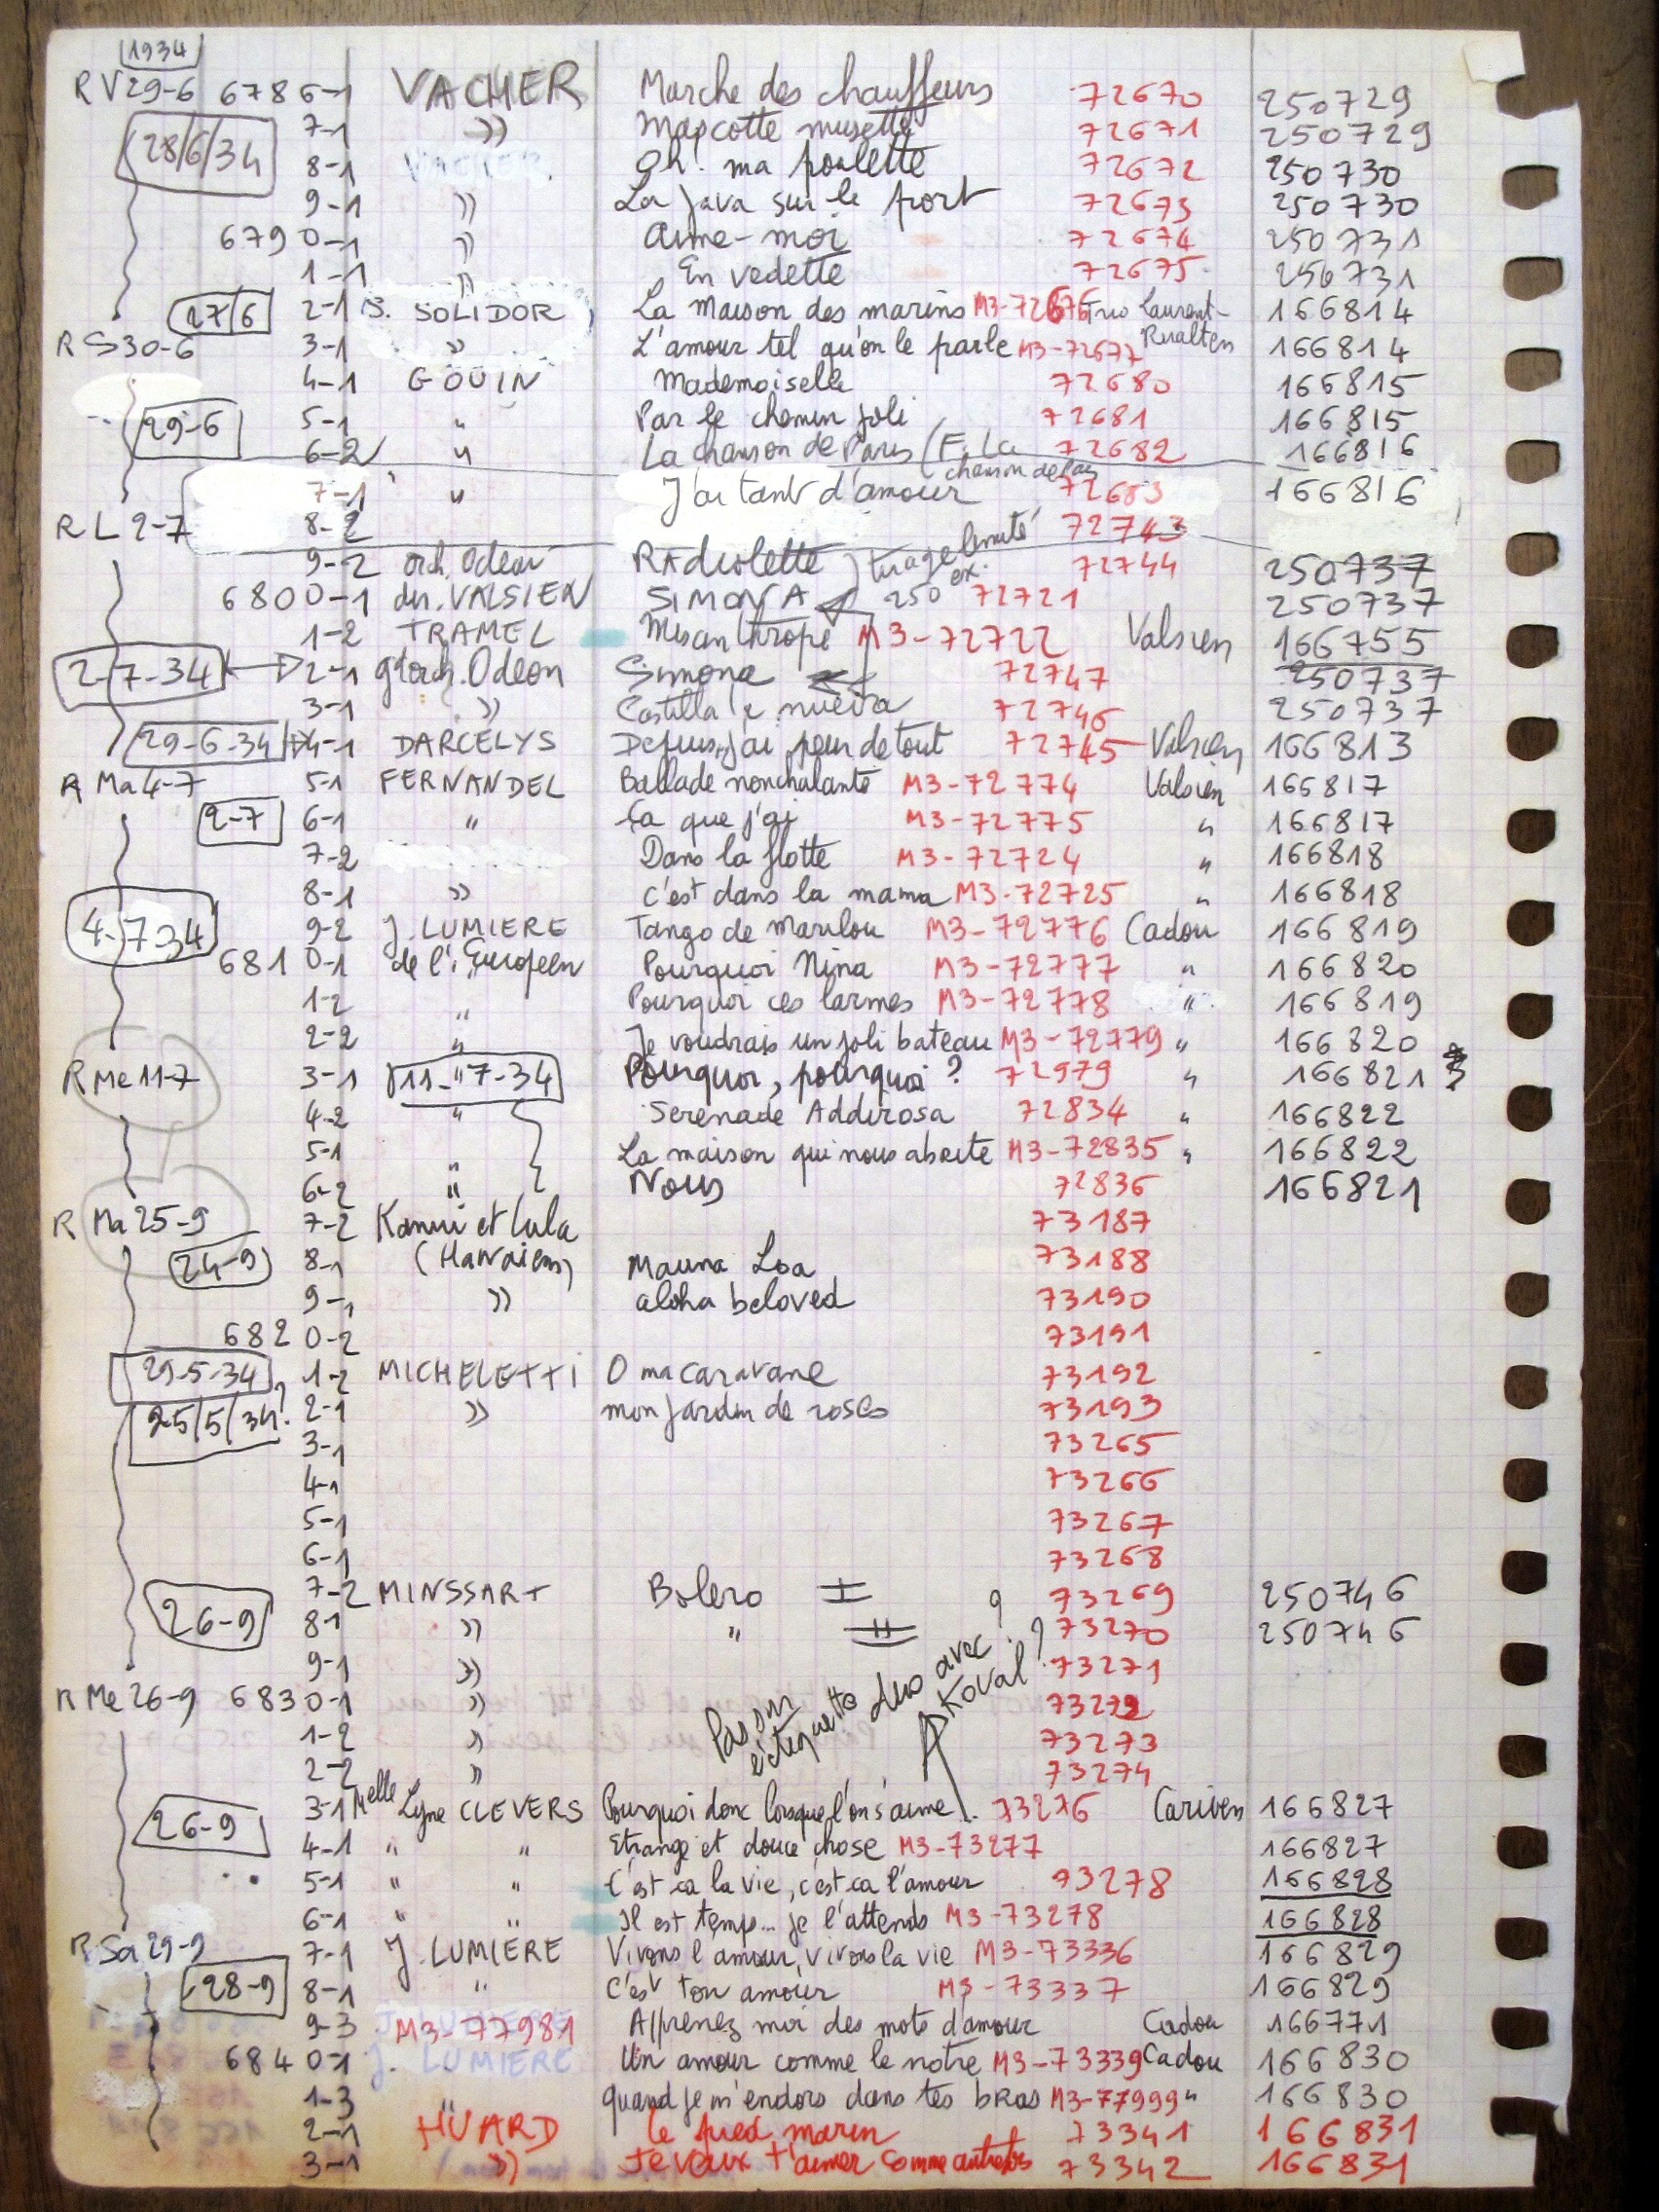 1934
RV29-6 6786-1 VACHER Marche des chauffeurs 72670 250729
7-1 » Mascotte musette 72671 250729
28/6/34 8-1 VACHER Oh! ma poulette 72672 250730
9-1 » La Java sur le port 72673 250730
6790-1 » Aime-moi 72674 250731
1-1 » En vedette 72675 250731
27/6 2-1 S. SOLIDOR La maison des marins M3-72676 Trio Laurent- 166814
RS30-6 3-1 » L'amour tel qu'on le parle M3-72677 166814
4-1 GOUIN Mademoiselle 72680 166815
29-6 5-1 " Par le chemin joli 72681 166815
6-2 " La chanson de Paris (F. La 72682 166816
chanson de
7-1 " J'ai tant d'amour 72683 166816
RL2-7 8-2 72743
9-2 orch. Odeon RAdiolette tirage limité 72744 250737
6800-1 dir. VALSIEN SIMONA 250 ex. 72721 250737
1-2 TRAMEL Misanthrope M3-72722 Valsien 166755
2-7-34 2-1 gd orch. Odeon Simona 72747 250737
3-1 » Castilla e nueva 72746 250737
29-6-34 4-1 DARCELYS Depuis, j'ai peur de tout 72745 Valsien 166813
R Ma4-7 5-1 FERNANDEL Ballade nonchalante M3-72774 Valsien 166817
2-7 6-1 " Ca que j'ai M3-72775 " 166817
7-2 Dans la flotte M3-72724 " 166818
8-1 » C'est dans la mama M3-72725 " 166818
4-7-34 9-2 J. LUMIERE Tango de Marilou M3-72776 Cadou 166819
6810-1 de l'Européen Pourquoi Nina M3-72777 " 166820
1-2 " Pourquoi ces larmes M3-72778 " 166819
2-2 " Je voudrais un joli bateau M3-72779 " 166820
R Me11-7 3-1 11-7-34 " Pourquoi, pourquoi? 72979 " 166821
4-2 " Serenade Addirosa 72834 " 166822
5-1 " La maison qui nous abrite M3-72835 " 166822
6-2 " Nous 72836 166821
R Ma25-9 7-2 Kanui et Lula 73187
24-9 8-1 (Hawaiens) Mauna Loa 73188
9-1 » aloha beloved 73190
6820-2 73191
29-5-34 1-2 MICHELETTI O ma caravane 73192
25/5/34? 2-1 » mon jardin de roses 73193
3-1 73265
4-1 73266
5-1 73267
6-1 73268
7-2 MINSSART Bolero I ? 73269 250746
26-9 8-1 » " II 73270 250746
9-1 » 73271
R Me26-9 6830-1 » 73272
1-2 » 73273
2-2 » 73274
Pas sur étiquette duo avec Koval?
26-9 3-1 Melle Lyne CLEVERS Pourquoi donc lorsque l'on s'aime 73276 Cariven 166827
4-1 " " Etrange et douce chose M3-73277 166827
5-1 " " C'est ca la vie, c'est ca l'amour 73278 166828
6-1 " " Il est temps... je l'attends M3-73278 166828
R Sa29-9 7-1 J. LUMIERE Vivons l'amour, vivons la vie M3-73336 166829
28-9 8-1 " C'est ton amour M3-73337 166829
9-3 M3-77981 Apprenez moi des mots d'amour Cadou 166771
6840-1 J. LUMIERE Un amour comme le notre M3-73339 Cadou 166830
1-3 " quand je m'endors dans tes bras M3-77999 " 166830
2-1 HUARD Le pied marin 73341 166831
3-1 » Je veux t'aimer comme autrefois 73342 166831